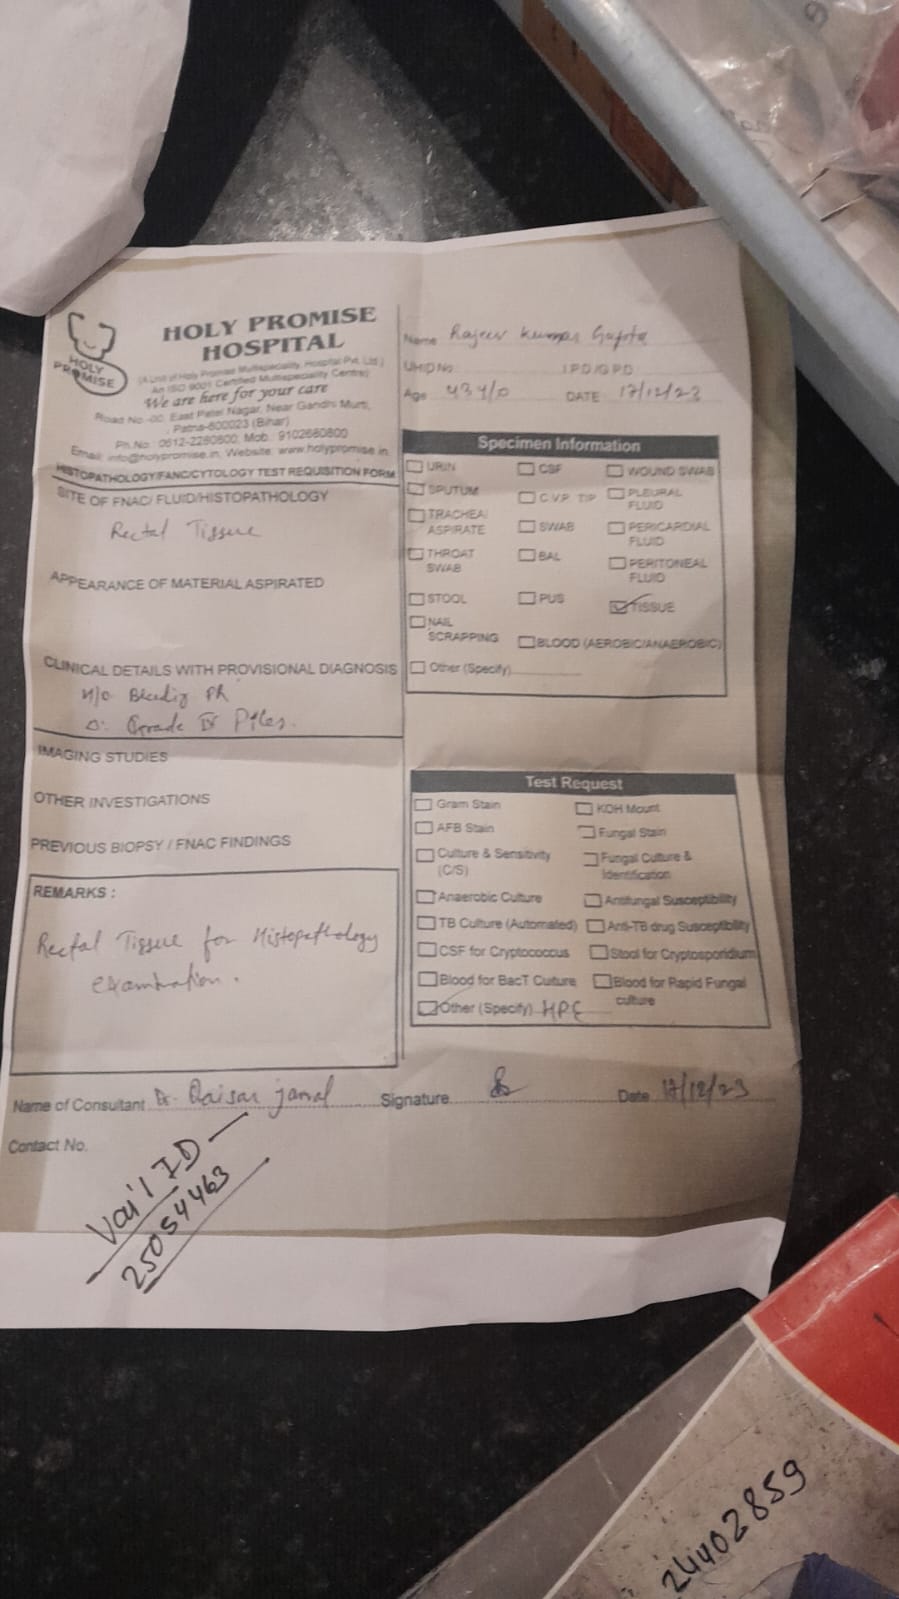 HOLY PROMISE
HOSPITAL
HOLY
PROMISE
(A Unit of Holy Promise Multispeciality Hospital Pvt. Ltd.)
An ISO 9001 Certified Multispeciality Centre)
We are here for your care
Road No.-00, East Patel Nagar, Near Gandhi Murti,
Patna-800023 (Bihar)
Ph.No.: 0612-2280800, Mob.: 9102680800
Email: info@holypromise.in, Website: www.holypromise.in
HISTOPATHOLOGY/FANC/CYTOLOGY TEST REQUISITION FORM
SITE OF FNAC/ FLUID/HISTOPATHOLOGY
Rectal Tissue
APPEARANCE OF MATERIAL ASPIRATED
CLINICAL DETAILS WITH PROVISIONAL DIAGNOSIS
H/O Bleeding PR
Grade Piles.
IMAGING STUDIES
OTHER INVESTIGATIONS
PREVIOUS BIOPSY / FNAC FINDINGS
REMARKS :
Rectal Tissue for Histopathology
examination.
Name Rajeev Kumar Gupta
UHID No. IPD/OPD
Age 43y/o DATE 17/12/23
Specimen Information
URIN CSF WOUND SWAB
SPUTUM C.V.P. TIP PLEURAL
FLUID
TRACHEA
ASPIRATE SWAB PERICARDIAL
FLUID
THROAT
SWAB BAL PERITONEAL
FLUID
STOOL PUS TISSUE
NAIL
SCRAPPING BLOOD (AEROBIC/ANAEROBIC)
Other (Specify)
Test Request
Gram Stain KOH Mount
AFB Stain Fungal Stain
Culture & Sensitivity
(C/S) Fungal Culture &
Identification
Anaerobic Culture Antifungal Susceptibility
TB Culture (Automated) Anti-TB drug Susceptibility
CSF for Cryptococcus Stool for Cryptosporidium
Blood for BacT Culture Blood for Rapid Fungal
culture
Other (Specify) HPE
Name of Consultant Dr. Qaisar jamal Signature Date 17/12/23
Contact No.
Vai'l ID —
25054463
24402859